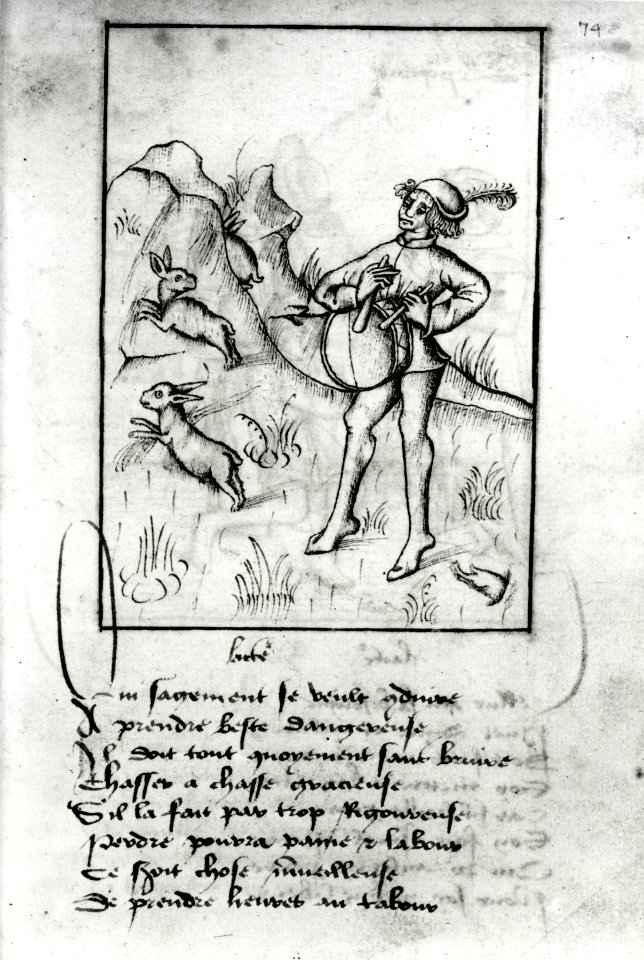 74
ui sagement se veult ꝯduire
A prendre beste dangereuse
Il doit tout quoyement sans bruire
Chasser a chasse gracieuse
Sil la fait par trop Rigoureuse
Perdre pourra paine & labour
Ce s'roit chose m̄ueilleuse
De prendre lieures au tabour